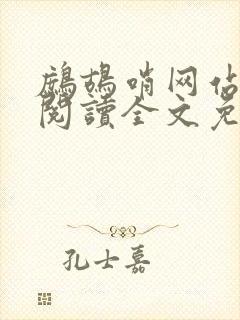 鷓鴣哨网估
閱讀全文免
孔士嘉